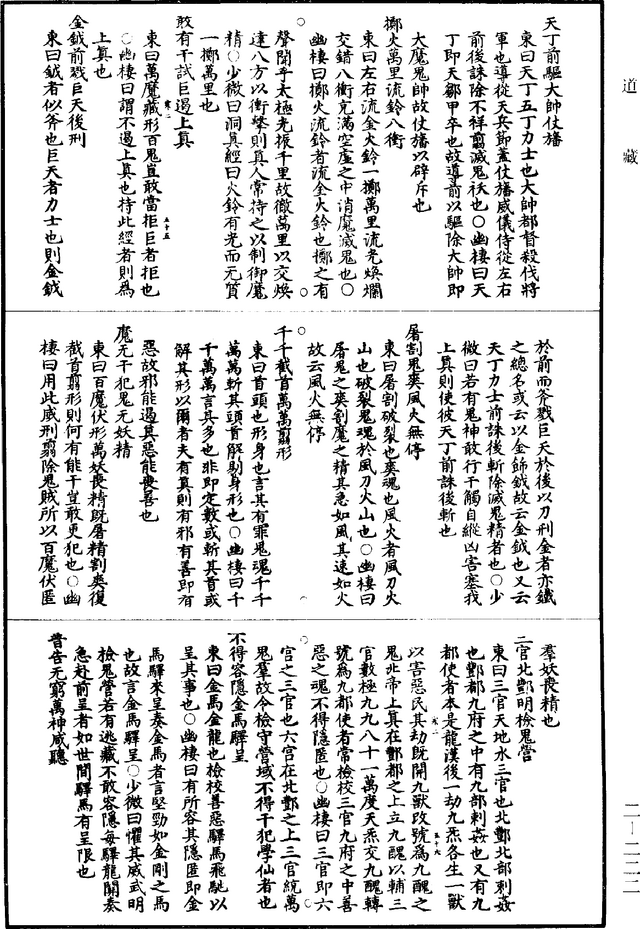 道藏
天丁前驅大帥仗旛
東曰天丁五丁力士也大帥都督殺伐將
軍也導從天兵節蓋仗旛威儀侍從左右
前後誅除不祥翦滅鬼祅也○幽棲曰天
丁即天鄒甲卒也故導前以驅除大帥即
大魔鬼帥故仗旛以辟斥也
擲火萬里流鈴八衝
東曰左右流金火鈴一擲萬里流光煥爛
交錯八衝充滿空虛之中消魔滅鬼也○
幽棲曰擲火流鈴者流金火鈴也擲之有
聲聞乎太極光振千里故徹萬里以交煥
達八方以衝擊則真人常持之以制御魔
精○少微曰洞真經曰火鈴有光而无質
一擲萬里也
敢有干試巨遏上真
東曰萬魔藏形百鬼豈敢當拒巨者拒也
○幽棲曰謂不遏上真也持此經者則為
上真也
金鉞前戮巨天後刑
東曰鉞者似斧也巨天者力士也則金鉞
於前而斧戮巨天於後以刀刑金者亦鐵
之總名或云以金飾鉞故云金鉞也又云
天丁力士前誅後斬除滅鬼精者也○少
微曰若有鬼神敢行干觸自縱凶害塞我
上真則使彼天丁前誅後斬也
屠割鬼爽風火無停
東曰屠割破裂也爽魂也風火者風刀火
山也破裂鬼魂於風刀火山也○幽棲曰
屠鬼之爽割魔之精其急如風其速如火
故云風火無停
千千截首萬萬翦形
東曰首頭也形身也言其有罪鬼魂千千
萬萬斬其頭首解剔身形也○幽棲曰千
千萬萬言其多也非即定數或斬其首或
解其形以爾者夫有真則有邪有善即有
惡故邪能遏真惡能喪善也
魔无干犯鬼无妖精
東曰百魔伏形萬妖喪精既屠精割爽復
截首翦形則何有能干豈敢更犯也○幽
棲曰用此威刑翦除鬼賊所以百魔伏匿
羣妖喪精也
三官北酆明檢鬼營
東曰三官天地水三官也北酆北部刺姦
也酆都九府之中有九部刺姦也又有九
都使者本是龍漢後一劫九炁各生一獸
以害惡民其劫既開九獸改號為九醜之
鬼北帝上真在酆都之上立九醜以輔三
官數極九九八十一萬度天炁交九醜轉
號為九都使者常檢校三官九府之中善
惡之魂不得隱匿也○幽棲曰三官即六
宮之三官也六宮在北酆之上三官統萬
鬼羣故令檢守營域不得干犯學仙者也
不得容隱金馬驛呈
東曰金馬金龍也檢校善惡驛馬飛馳以
呈其事也○幽棲曰有所容其隱匿即金
馬驛來呈奏金馬者言堅勁如金剛之馬
也故言金馬驛呈○少微曰懼其威武明
檢鬼營若有逃藏不敢容隱每驛龍關奏
急赴前呈者如世間驛馬有呈限也
普告无窮萬神咸聽
卷二 五十五
卷二 五十六
二-二三二